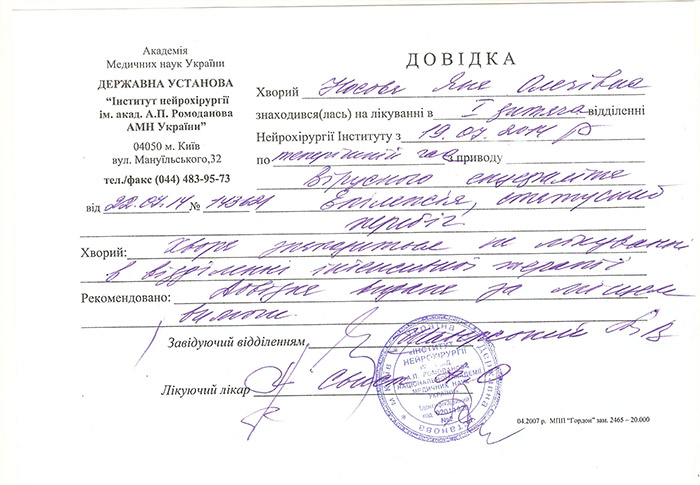 Академія
Медичних наук України
ДЕРЖАВНА УСТАНОВА
“Інститут нейрохірургії
ім. акад. А.П. Ромоданова
АМН України”
04050 м. Київ
вул. Мануїльського,32
тел./факс (044) 483-95-73
від 22.07.14 № 143681
ДОВІДКА
Хворий Носова Яна Олегівна
знаходився(лась) на лікуванні в I дитяче відділенні
Нейрохірургії Інституту з 19.07.2014 р
по теперішній час з приводу
Вірусного енцефаліта
Епілепсія, статусний
перебіг
Хворий: Хвора знаходится на лікуванні
в відділенні інтенсивної терапії
Рекомендовано: Довідка видана за місцем
вимоги.
Завідуючий відділенням
Лікуючий лікар
ІНСТИТУТ
НЕЙРОХІРУРГІЇ
А.П. РОМОДАНОВА
НАЦІОНАЛЬНОЇ АКАДЕМІЇ
МЕДИЧНИХ НАУК
УКРАЇНИ
04.2007 р. МПП “Гордон” зам. 2465 – 20.000